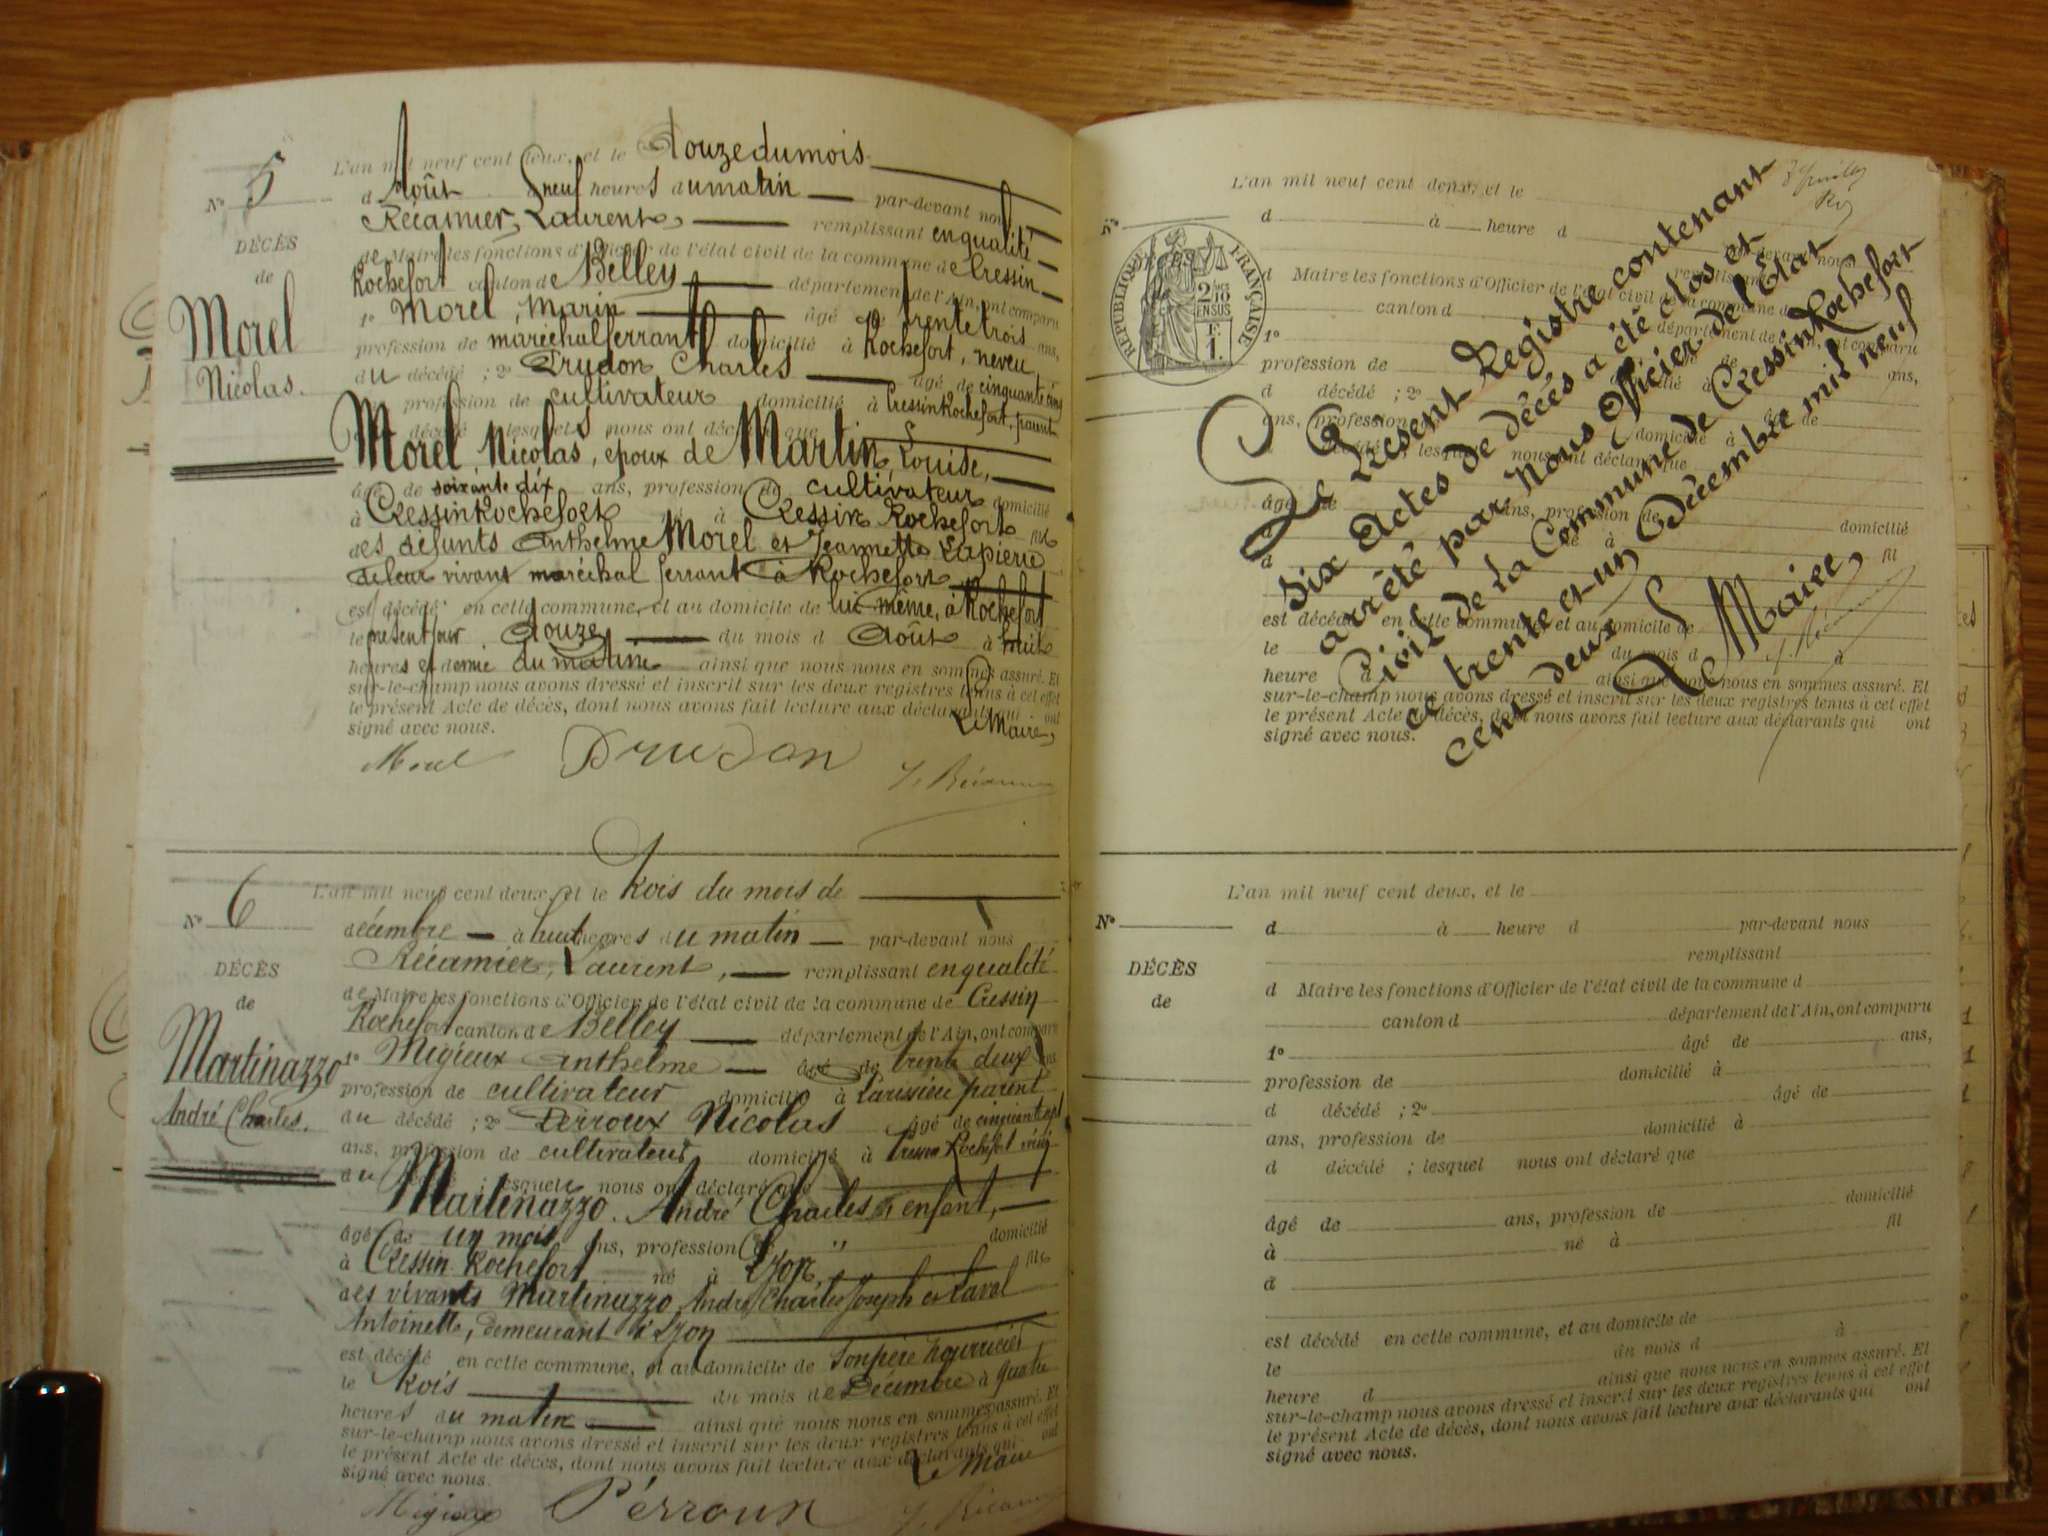 L'an mil neuf cent deux, et le douze du mois
Nº 5
d'Août à neuf heures du matin par-devant nous
Récamier, Laurent, remplissant en qualité
DÉCÈS
de
Morel
Nicolas.
de Maire les fonctions d'Officier de l'état civil de la commune de Cressin
Rochefort canton de Belley département de l'Ain, ont comparu
1º Morel, Marin âgé de trente trois ans,
profession de maréchal ferrant domicilié à Rochefort, neveu
du décédé ; 2º Drudon Charles âgé de cinquante cinq
profession de cultivateur domicilié à Cressin Rochefort, parent
décédé lesquels nous ont déclaré que
Morel, Nicolas, époux de Martin, Louise,
âgé de soixante dix ans, profession de cultivateur domicilié
à Cressin Rochefort né à Cressin Rochefort fils
des défunts Anthelme Morel et Jeannette Lapierre
de leur vivant maréchal ferrant à Rochefort
est décédé en cette commune, et au domicile de lui-même, à Rochefort
le présent jour douze du mois d'Août à huit
heures et demie du matin ainsi que nous nous en sommes assuré. Et
sur-le-champ nous avons dressé et inscrit sur les deux registres tenus à cet effet
le présent Acte de décès, dont nous avons fait lecture aux déclarants qui ont
signé avec nous. Le Maire,
Morel Drudon L. Récamier
L'an mil neuf cent deux, et le trois du mois de
Nº 6
décembre à huit heures du matin par-devant nous
Récamier, Laurent, remplissant en qualité
DÉCÈS
de
Martinazzo
André Charles.
de Maire les fonctions d'Officier de l'état civil de la commune de Cressin
Rochefort canton de Belley département de l'Ain, ont comparu
1º Migieux Anthelme âgé de trente deux ans
profession de cultivateur domicilié à parent
du décédé ; 2º Perroux Nicolas âgé de cinquante sept
ans, profession de cultivateur domicilié à Cressin Rochefort
du lesquels nous ont déclaré que
Martinazzo, André Charles, enfant,
âgé de un mois ans, profession de " domicilié
à Cressin Rochefort né à Lyon, fils
des vivants Martinazzo, André Charles Joseph et Laval
Antoinette, demeurant à Lyon
est décédé en cette commune, et au domicile de son père nourricier
le trois du mois de Décembre à quatre
heures du matin ainsi que nous nous en sommes assuré. Et
sur-le-champ nous avons dressé et inscrit sur les deux registres tenus à cet effet
le présent Acte de décès, dont nous avons fait lecture aux déclarants qui ont
signé avec nous. Le Maire
Migieux Perroux L. Récamier
L'an mil neuf cent deux, et le
Nº
d à heure d par-devant nous
remplissant
RÉPUBLIQUE FRANÇAISE
2/10 EN SUS
F. 1.
d Maire les fonctions d'Officier de l'état civil de la commune d
canton d département de l'Ain, ont comparu
1º âgé de
profession de domicilié à ans,
d décédé ; 2º âgé de
ans, profession domicilié à
décédé ; lesquel nous ont déclaré que
âgé de ans, profession de domicilié
né à fil
d
est décédé en cette commune, et au domicile de
le du mois d à
heure d ainsi que nous nous en sommes assuré. Et
sur-le-champ nous avons dressé et inscrit sur les deux registres tenus à cet effet
le présent Acte de décès, dont nous avons fait lecture aux déclarants qui ont
signé avec nous.
Le Présent Registre contenant
six Actes de décès a été clos et
arrêté par Nous Officier de l'État
Civil de la Commune de Cressin Rochefort
ce trente et un Décembre mil neuf
cent deux
Le Maire,
L. Récamier
L'an mil neuf cent deux, et le
Nº
d à heure d par-devant nous
remplissant
DÉCÈS
de
d Maire les fonctions d'Officier de l'état civil de la commune d
canton d département de l'Ain, ont comparu
1º âgé de ans,
profession de domicilié à
d décédé ; 2º âgé de
ans, profession de domicilié à
d décédé ; lesquel nous ont déclaré que
âgé de ans, profession de domicilié
à né à fil
d
est décédé en cette commune, et au domicile de
le du mois d à
heure d ainsi que nous nous en sommes assuré. Et
sur-le-champ nous avons dressé et inscrit sur les deux registres tenus à cet effet
le présent Acte de décès, dont nous avons fait lecture aux déclarants qui ont
signé avec nous.